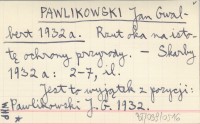 PAWLIKOWSKI Jan Gwal-
bert 1932 a. Rzut oka na isto-
tę ochrony przyrody. – Skarby
1932 a: 2-7, il.
Jest to wyjątek z pozycji:
Pawlikowski J. G. 1932.
WHP